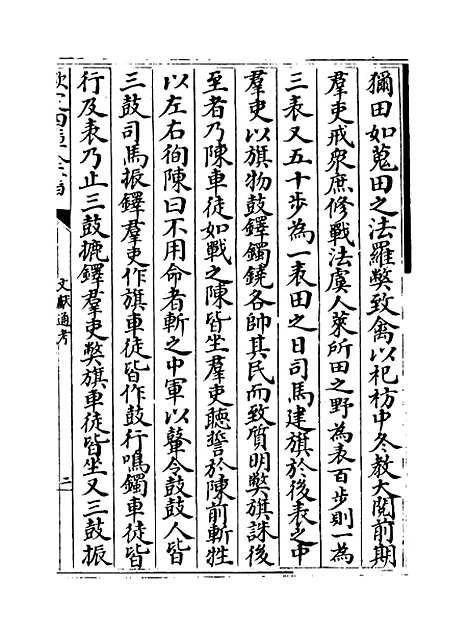 獮田如蒐田之法羅弊致禽以祀祊中冬教大閱前期
羣吏戒衆庶修戰法虞人萊所田之野為表百步則一為
三表又五十步為一表田之日司馬建旗於後表之中
羣吏以旗物鼓鐸鐲鐃各帥其民而致質明弊旗誅後
至者乃陳車徒如戰之陳皆坐羣吏聽誓於陳前斬牲
以左右徇陳曰不用命者斬之中軍以鼙令鼓鼓人皆
三鼓司馬振鐸羣吏作旗車徒皆作鼓行鳴鐲車徒皆
行及表乃止三鼓摝鐸羣吏弊旗車徒皆坐又三鼓振
文獻通考
二